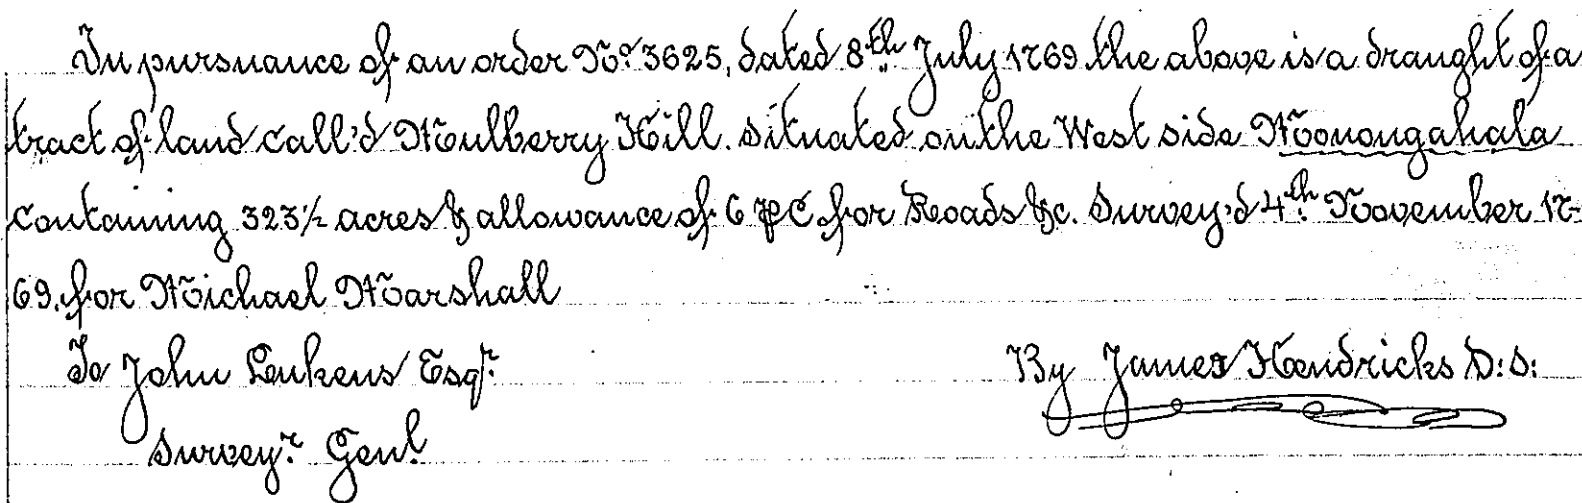 In pursuance of an order No. 3625, dated 8th July 1769 the above is a draught of a
tract of land call'd Mulberry Hill. situated on the West side Monongahala
containing 323½ acres & allowance of 6 ⅌ C for Roads &c. Survey'd 4th November 17-
69. for Michael Marshall
To John Lukens Esqr. By James Hendricks D:S:
Surveyr. Genl